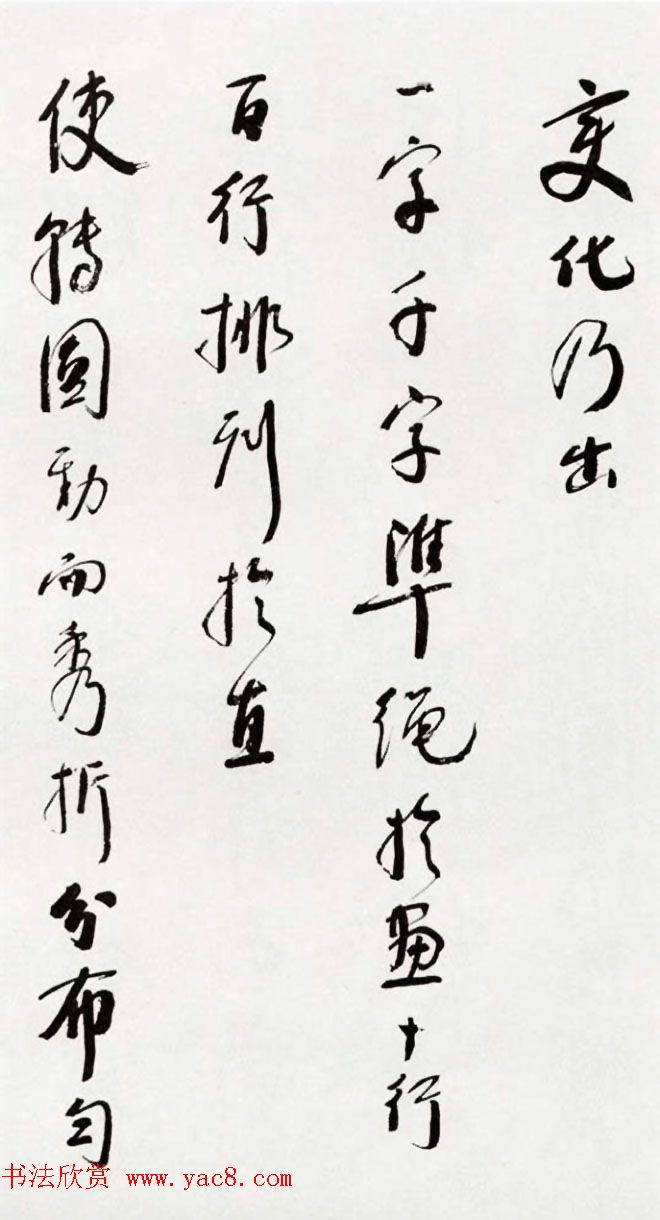 变化乃出
一字千字準绳於畫十行
百行排列於直
使轉圆動而秀折分布匀
书法欣赏 www.yac8.com